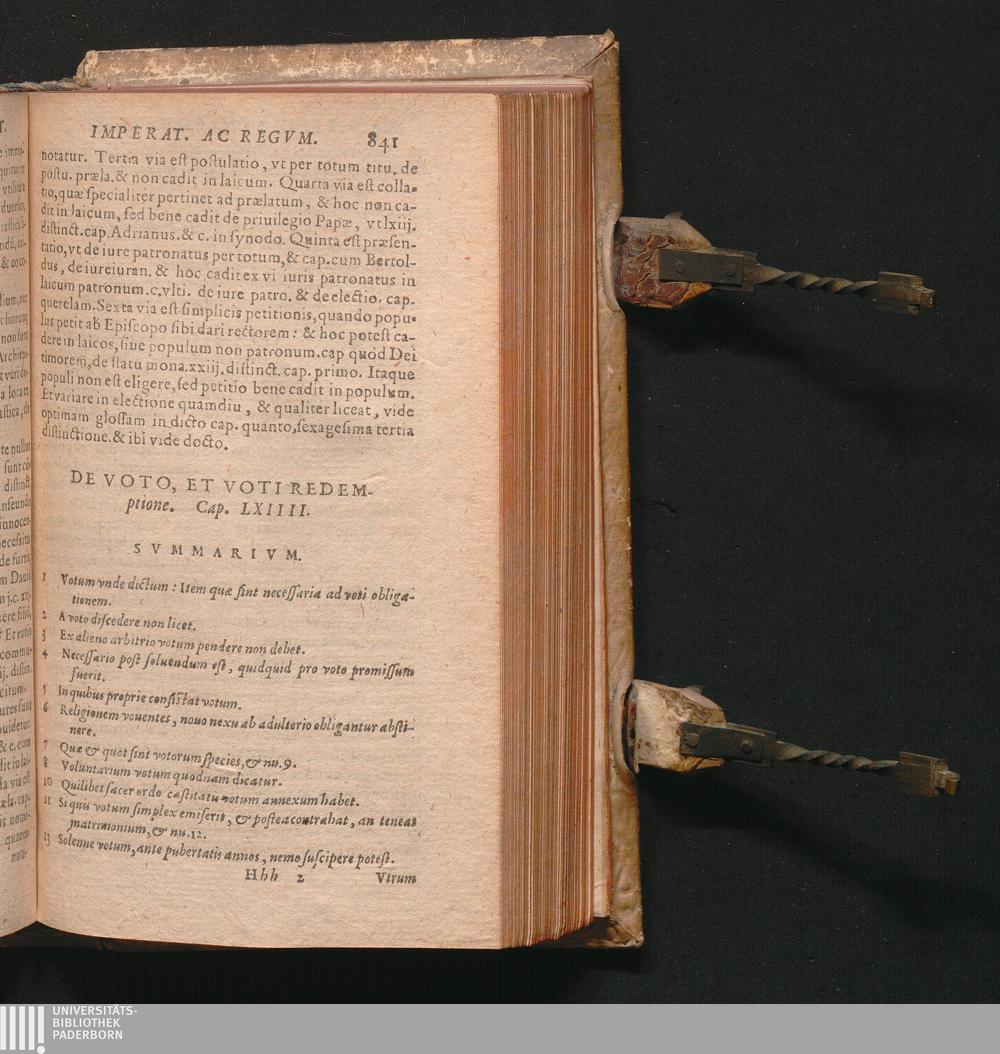 IMPERAT. AC REGVM. 841
notatur. Tertia via est postulatio, vt per totum titu. de
postu. præla. & non cadit in laicum. Quarta via est colla-
tio, quæ specialiter pertinet ad prælatum, & hoc non ca-
dit in laicum, sed bene cadit de priuilegio Papæ, vt lxiij.
distinct. cap. Adrianus. & c. in synodo. Quinta est præsen-
tatio, vt de iure patronatus per totum, & cap. cum Bertol-
dus, de iureiuran. & hoc cadit ex vi iuris patronatus in
laicum patronum. c. vlti. de iure patro. & de electio. cap.
querelam. Sexta via est simplicis petitionis, quando popu-
lus petit ab Episcopo sibi dari rectorem: & hoc potest ca-
dere in laicos, siue populum non patronum. cap quòd Dei
timorem, de statu mona. xxiij. distinct. cap. primo. Itaque
populi non est eligere, sed petitio bene cadit in populum.
Et variare in electione quamdiu, & qualiter liceat, vide
optimam glossam in dicto cap. quanto, sexagesima tertia
distinctione. & ibi vide docto.
DE VOTO, ET VOTI REDEM-
ptione. Cap. LXIIII.
SVMMARIVM.
1 Votum vnde dictum: Item quæ sint necessaria ad voti obliga-
tionem.
2 A voto discedere non licet.
3 Ex alieno arbitrio votum pendere non debet.
4 Necessario post soluendum est, quidquid pro voto promissum
fuerit.
5 In quibus proprie consistat votum.
6 Religionem vouentes, nouo nexu ab adulterio obligantur absti-
nere.
7 Quæ & quot sint votorum species, & nu. 9.
8 Voluntarium votum quodnam dicatur.
10 Quilibet sacer ordo castitatis votum annexum habet.
11 Si quis votum simplex emiserit, & postea contrahat, an teneat
matrimonium, & nu. 12.
13 Solenne votum, ante pubertatis annos, nemo suscipere potest.
Hhh 2 Vtrum
UNIVERSITÄTS-
BIBLIOTHEK
PADERBORN